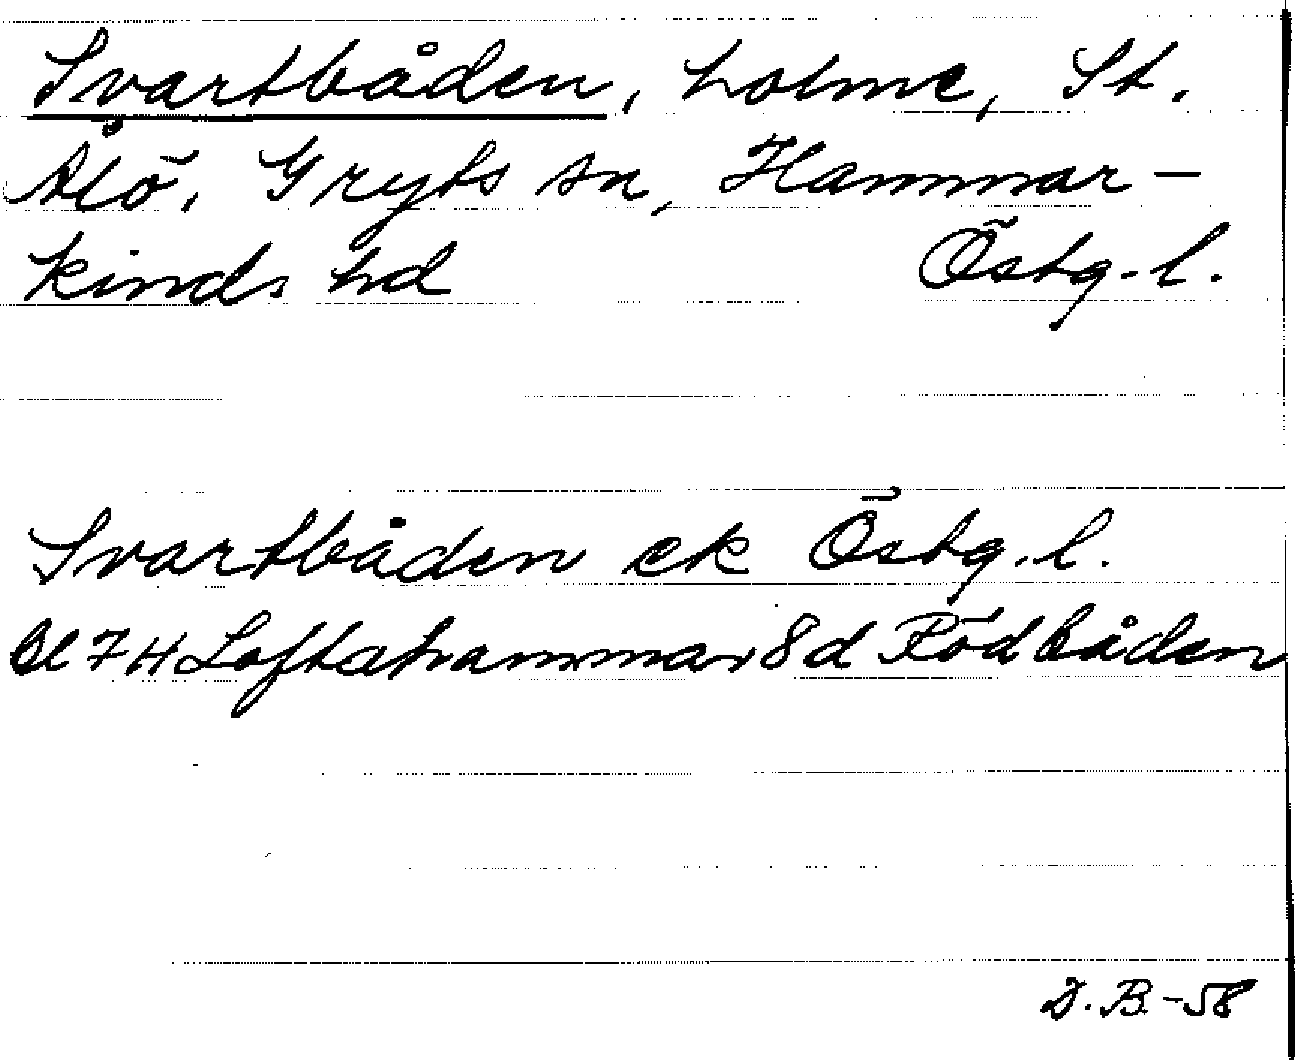 Svartbåden, holme, St.
Ålö, Gryts sn, Hammar-
kinds hd Östg.l.
Svartbåden ek Östg.l.
Bl 7H Loftahammar 8d Rödbåden
D.B-58